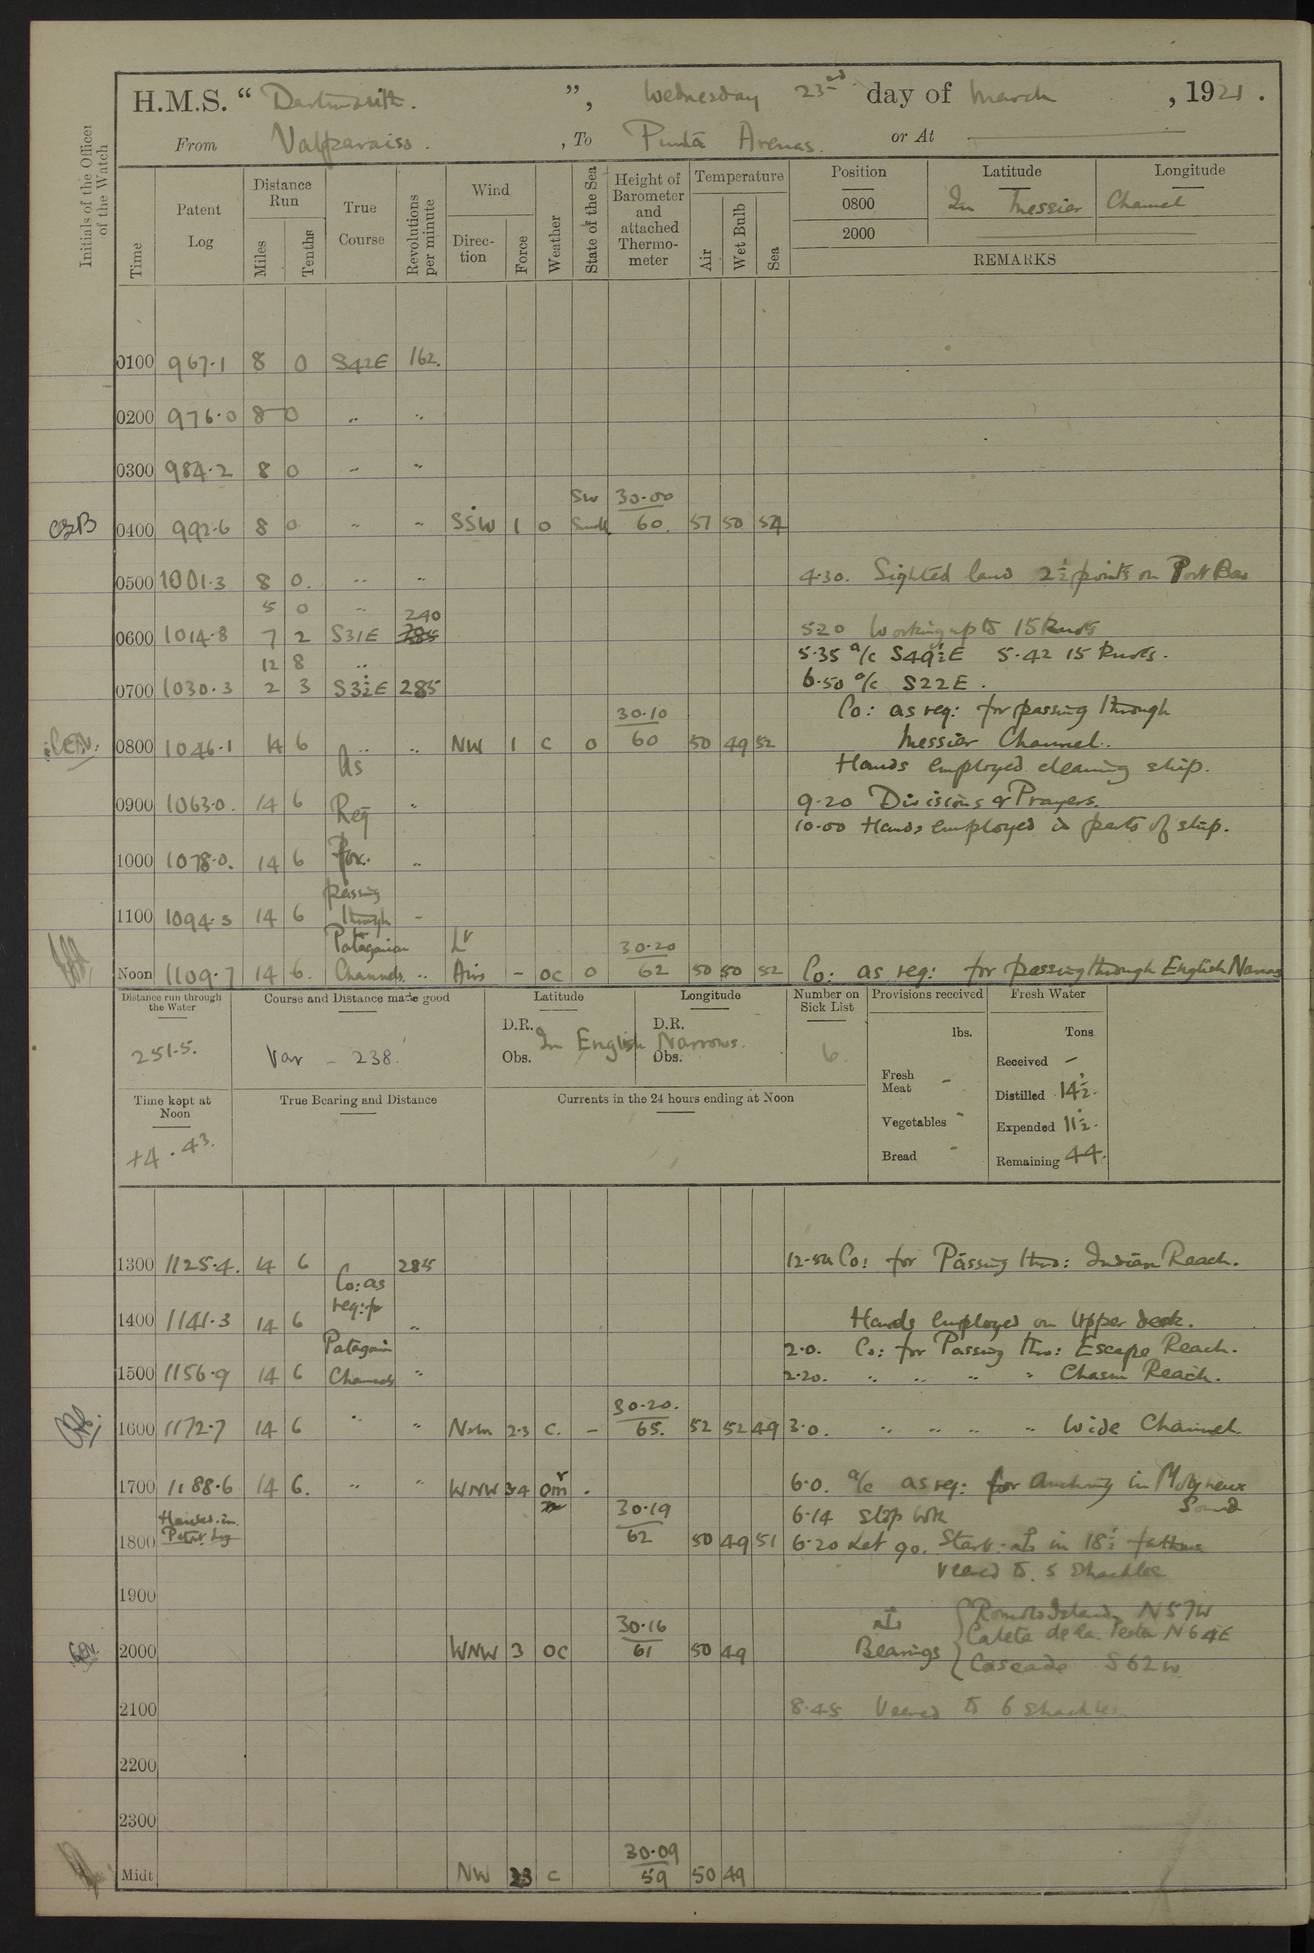 H.M.S. “ Dartmouth. ”, Wednesday 23rd day of March , 1921 .
From Valparaiso . , To Punta Arenas. or At
Initials of the Officer of the Watch
Time
Patent Log
Distance Run
Miles
Tenths
True Course
Revolutions per minute
Wind
Direction
Force
Weather
State of the Sea
Height of Barometer and attached Thermometer
Temperature
Air
Wet Bulb
Sea
Position Latitude Longitude
0800 In Messier Channel
2000
REMARKS
0100 967.1 8 0 S42E 162.
0200 976.0 8 0 " "
0300 984.2 8 0 " "
Sw 30.00
0400 992.6 8 0 " " SSW 1 0 Smth 60. 51 50 54
0500 1001.3 8 0. " " 4.30. Sighted land 2½ points on Port Bow
5 0 " 240
0600 1014.8 7 2 S31E 285 520 Working up to 15 Knots
12 8 " 5.35 a/c S49½E 5.42 15 Knots.
0700 1030.3 2 3 S3½E 285 6.50 a/c S22E .
30.10 Co: as req: for passing through
0800 1046.1 14 6 " " NW 1 c 0 60 50 49 52 Messier Channel.
As Hands employed cleaning ship.
0900 1063.0. 14 6 Req " 9.20 Divisions & Prayers.
10.00 Hands employed in parts of ship.
1000 1078.0. 14 6 for. "
passing
1100 1094.3 14 6 through "
Patagonian Lt 30.20
Noon 1109.7 14 6. Channels " Airs - oc 0 62 50 50 52 Co: as req: for passing through English Narrows
Distance run through the Water
251.5.
Course and Distance made good
Var - 238.
Latitude Longitude
D.R. D.R.
In English Narrows.
Obs. Obs.
Number on Sick List
6.
Provisions received
lbs.
Fresh Meat -
Vegetables -
Bread -
Fresh Water
Tons
Received -
Distilled 14½.
Expended 11½.
Remaining 44.
Time kept at Noon
+4.43.
True Bearing and Distance
Currents in the 24 hours ending at Noon
1300 1125.4. 14 6 285 12.50 Co: for Passing thro: Indian Reach.
Co: as
req: for
1400 1141.3 14 6 " Hands employed on Upper deck.
Patagonian 2.0. Co: for Passing thro: Escape Reach.
1500 1156.9 14 6 Channels " 2.20. " " " " Chasm Reach.
30.20.
1600 1172.7 14 6 " " 2.3 c. - 65. 52 52 49 3.0. " " " " Wide Channel.
1700 1188.6 14 6. " " WNW 3.4 omr 6.0. a/c as req: for Anchrng in Molyneux Sound
Hauled in Patent Log 30.19 6.14 Stop both
1800 62 50 49 51 6.20 Let go. Starb: in 18½ fathoms
veered to 5 shackles
1900
30.16 Romolo Island N57W
2000 WNW 3 oc 61 50 49 Bearings Caleta de la N64E
Cascade S62W
2100 8.45 Veered to 6 shackles
2200
2300
30.09
Midt NW c 59 50 49